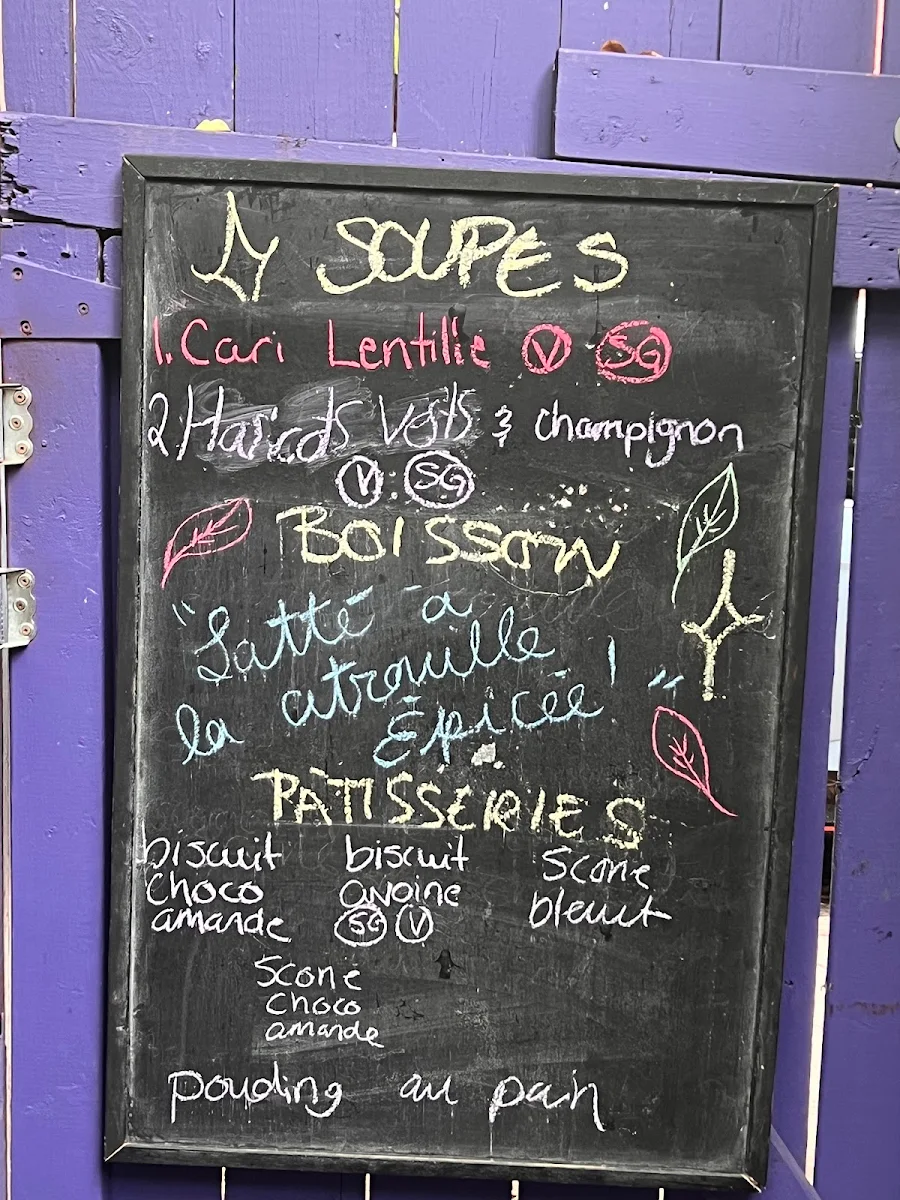 SOUPES
1. Cari Lentille V SG
2 Haricots Verts & champignon
V . SG
BOISSON
"Latté à
la citrouille
Épicée!"
PÂTISSERIES
biscuit biscuit Scone
choco avoine bleuet
amande SG V
Scone
choco
amande
pouding au pain